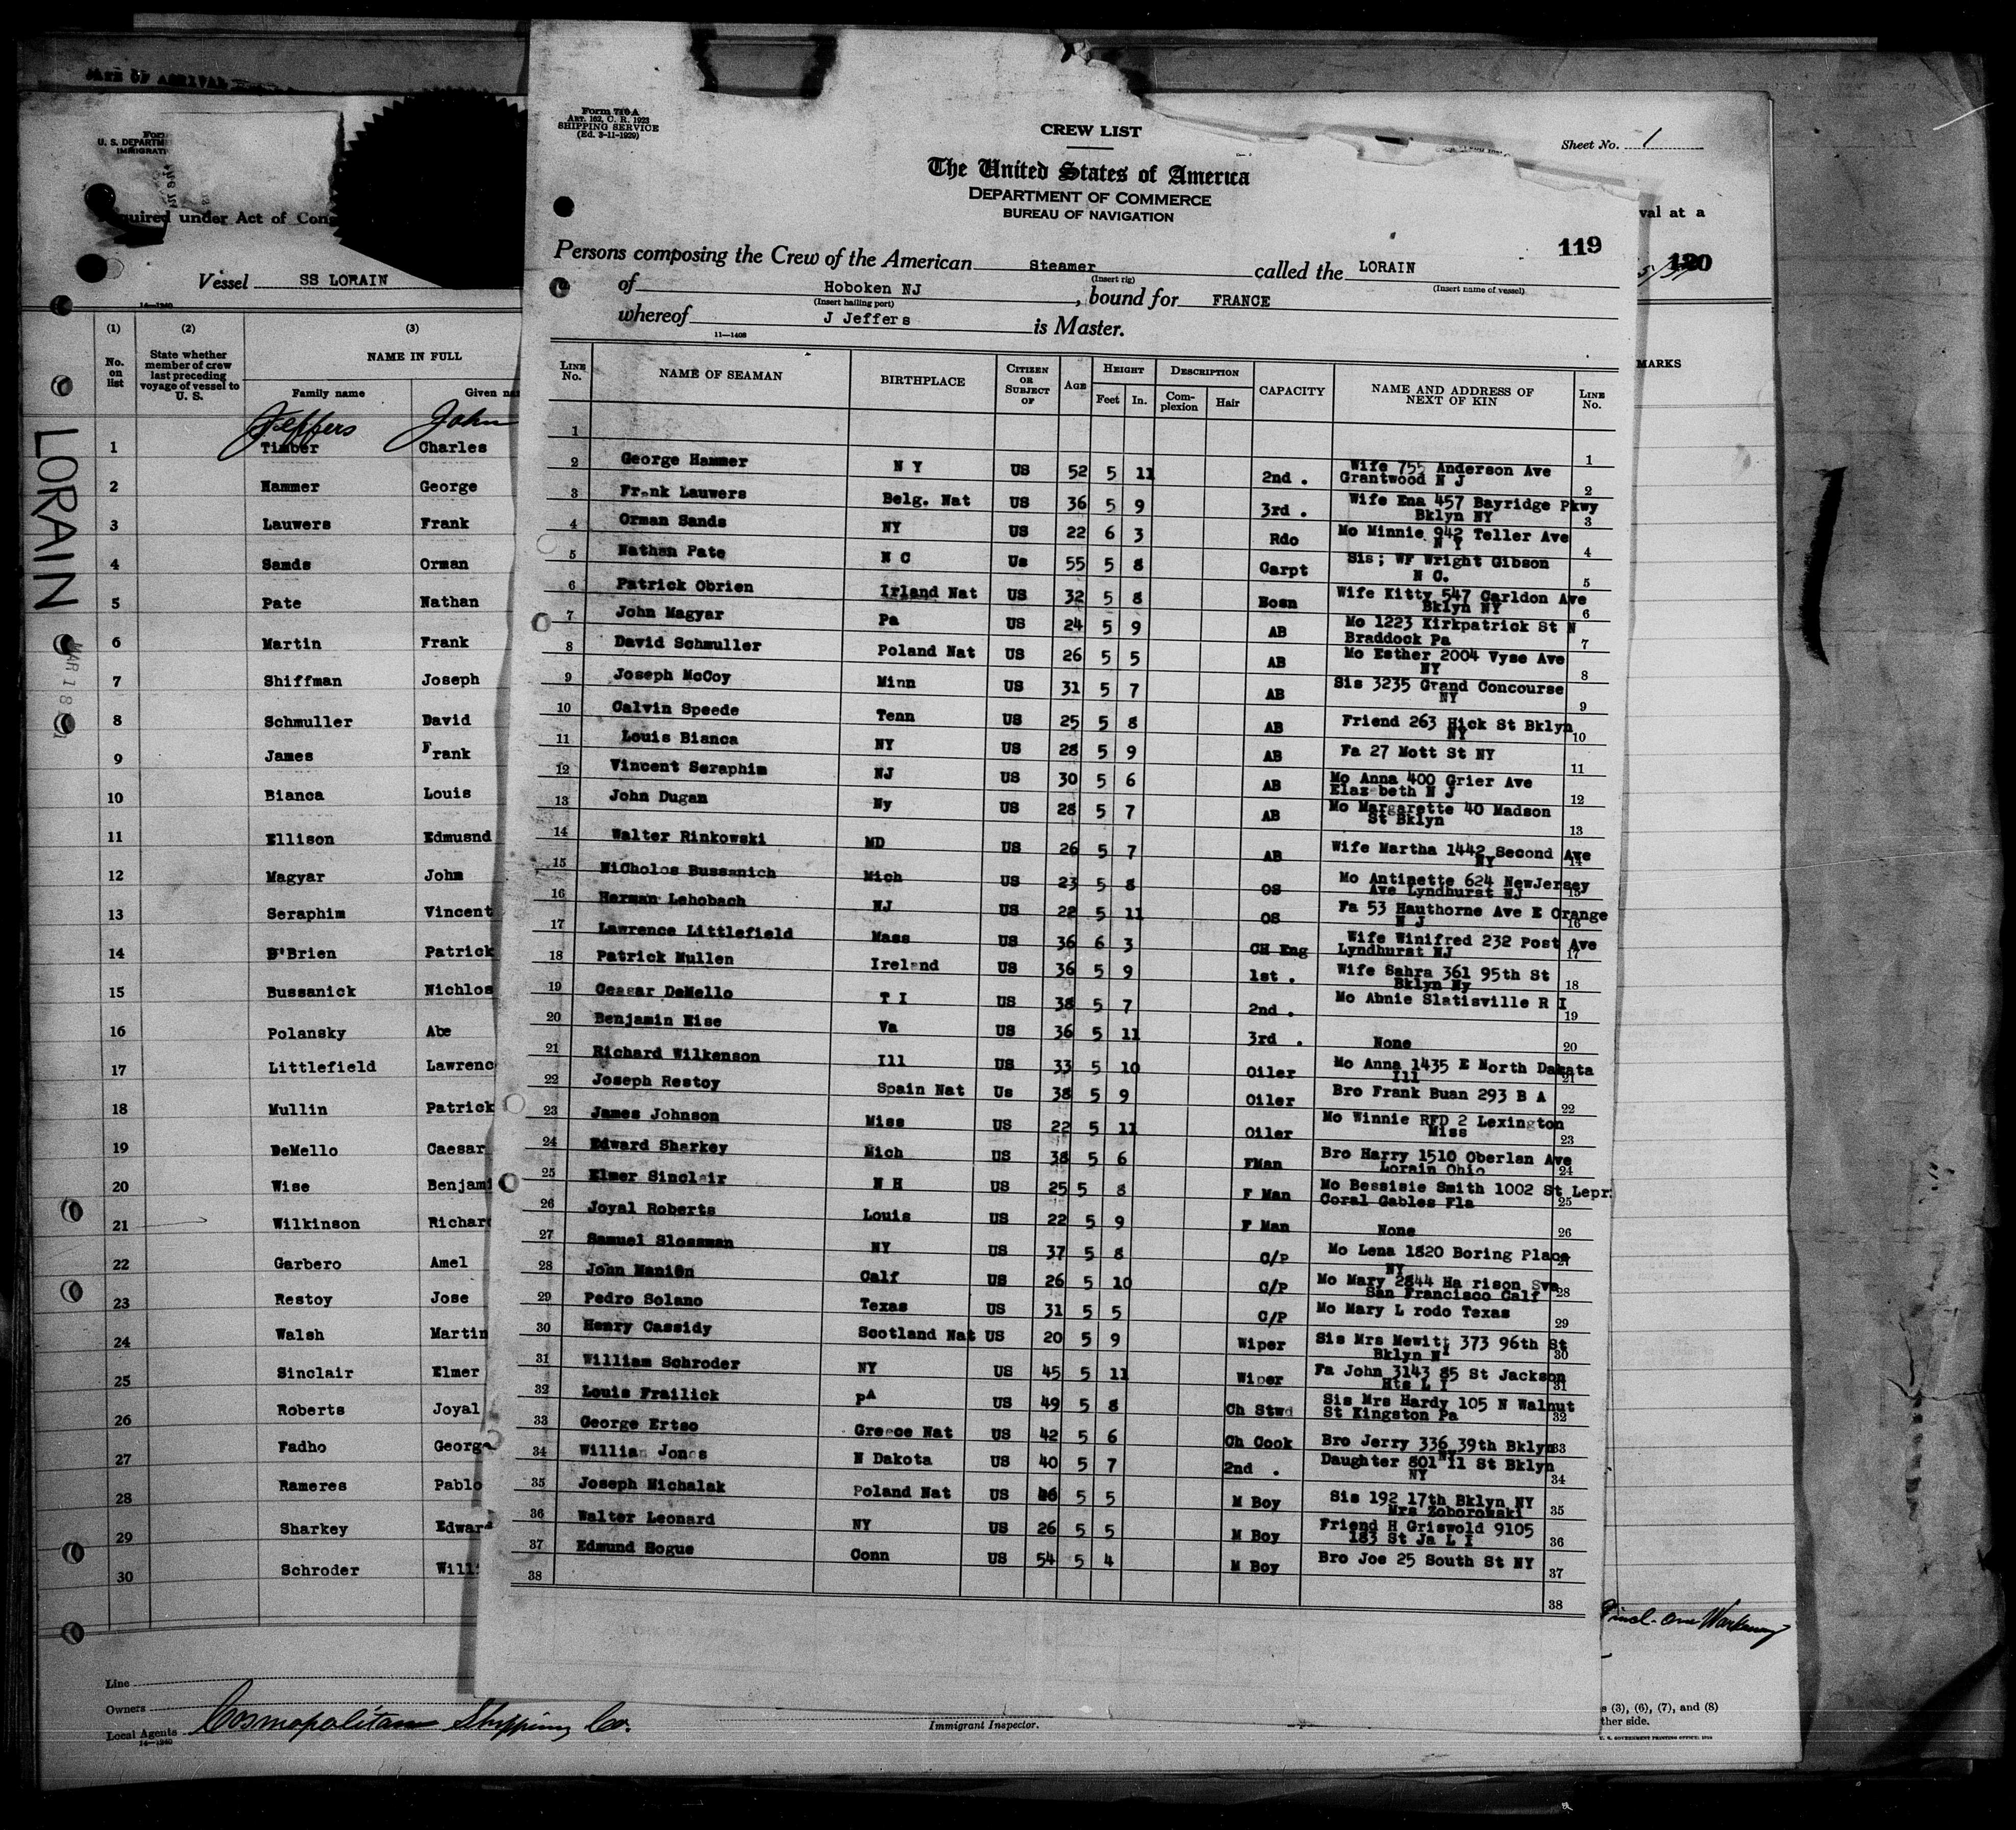 DATE OF ARRIVAL
Form
U. S. DEPARTM
IMMIGRATI
quired under Act of Cong
Vessel SS LORAIN
14—1240
(1) (2) (3)
No. on list
State whether member of crew last preceding voyage of vessel to U. S.
NAME IN FULL
Family name Given na
Jeffers John
1 Timber Charles
2 Hammer George
3 Lauwers Frank
4 Sands Orman
5 Pate Nathan
6 Martin Frank
7 Shiffman Joseph
8 Schmuller David
9 James Frank
10 Bianca Louis
11 Ellison Edmusnd
12 Magyar John
13 Seraphim Vincent
14 O'Brien Patrick
15 Bussanick Nichlos
16 Polansky Abe
17 Littlefield Lawrenc
18 Mullin Patrick
19 DeMello Caesar
20 Wise Benjami
21 Wilkinson Richar
22 Garbero Amel
23 Restoy Jose
24 Walsh Martin
25 Sinclair Elmer
26 Roberts Joyal
27 Fadho George
28 Rameres Pablo
29 Sharkey Edward
30 Schroder Will
LORAIN
MAR 18
Line
Owners
Local Agents Cosmopolitan Shipping Co.
14—1240
Immigrant Inspector.
Form 710 A
ART. 162, C. R. 1923
SHIPPING SERVICE
(Ed. 3-11-1929)
CREW LIST
Sheet No. 1
The United States of America
DEPARTMENT OF COMMERCE
BUREAU OF NAVIGATION
119
Persons composing the Crew of the American Steamer called the LORAIN
(Insert rig) (Insert name of vessel)
of Hoboken NJ, bound for FRANCE
(Insert hailing port)
whereof J Jeffers is Master.
11—1408
LINE No. NAME OF SEAMAN BIRTHPLACE CITIZEN OR SUBJECT OF AGE HEIGHT Feet In. DESCRIPTION Complexion Hair CAPACITY NAME AND ADDRESS OF NEXT OF KIN LINE No.
1 1
2 George Hammer N Y US 52 5 11 2nd . Wife 755 Anderson Ave Grantwood N J 2
3 Frank Lauwers Belg. Nat US 36 5 9 3rd . Wife Ena 457 Bayridge Pkwy Bklyn NY 3
4 Orman Sands NY US 22 6 3 Rdo Mo Minnie 942 Teller Ave N Y 4
5 Nathan Pate N C Us 55 5 8 Carpt Sis; WF Wright Gibson N C. 5
6 Patrick Obrien Irland Nat US 32 5 8 Bosn Wife Kitty 547 Carldon Ave Bklyn NY 6
7 John Magyar Pa US 24 5 9 AB Mo 1223 Kirkpatrick St N Braddock Pa 7
8 David Schmuller Poland Nat US 26 5 5 AB Mo Esther 2004 Vyse Ave NY 8
9 Joseph McCoy Minn US 31 5 7 AB Sis 3235 Grand Concourse NY 9
10 Calvin Speede Tenn US 25 5 8 AB Friend 263 Hick St Bklyn NY 10
11 Louis Bianca NY US 28 5 9 AB Fa 27 Mott St NY 11
12 Vincent Seraphim NJ US 30 5 6 AB Mo Anna 400 Grier Ave Elaz beth N J 12
13 John Dugan Ny US 28 5 7 AB Mo Margarette 40 Madson St Bklyn 13
14 Walter Rinkowski MD US 26 5 7 AB Wife Martha 1442 Second Ave NY 14
15 NiCholos Bussanich Mich US 23 5 8 OS Mo Antinette 624 NewJersey Ave Lyndhurst NJ 15
16 Herman Lehobach NJ US 22 5 11 OS Fa 53 Hauthorne Ave E Orange N J 16
17 Lawrence Littlefield Mass US 36 6 3 CH Eng Wife Winifred 232 Post Ave Lyndhurst NJ 17
18 Patrick Mullen Ireland US 36 5 9 1st . Wife Sahra 361 95th St Bklyn Ny 18
19 Ceasar DeMello T I US 38 5 7 2nd . Mo Abnie Slatisville R I 19
20 Benjamin Wise Va US 36 5 11 3rd . None 20
21 Richard Wilkenson Ill US 33 5 10 Oiler Mo Anna 1435 E North Dakata Ill 21
22 Joseph Restoy Spain Nat Us 38 5 9 Oiler Bro Frank Buan 293 B A 22
23 James Johnson Miss US 22 5 11 Oiler Mo Winnie RFD 2 Lexington Miss 23
24 Edward Sharkey Mich US 38 5 6 FMan Bro Harry 1510 Oberlan Ave Lorain Ohio 24
25 Elmer Sinclair N H US 25 5 8 F Man Mo Bessisie Smith 1002 St Lepr Coral Gables Fla 25
26 Joyal Roberts Louis US 22 5 9 F Man None 26
27 Samuel Slossman NY US 37 5 8 C/P Mo Lena 1820 Boring Place NY 27
28 John Manion Calf US 26 5 10 C/P Mo Mary 2844 Ha rison San Francisco Calf 28
29 Pedro Solano Texas US 31 5 5 C/P Mo Mary L rodo Texas 29
30 Henry Cassidy Scotland Nat US 20 5 9 Wiper Sis Mrs Mewitt 373 96th St Bklyn 30
31 William Schroder NY US 45 5 11 Wiper Fa John 3143 85 St Jackson Hts L I 31
32 Louis Frailick PA US 49 5 8 Ch Stwd Sis Mrs Hardy 105 N Walnut St Kingston Pa 32
33 George Ertso Greece Nat US 42 5 6 Ch Cook Bro Jerry 336 39th Bklyn NY 33
34 William Jones N Dakota US 40 5 7 2nd . Daughter 801 11 St Bklyn NY 34
35 Joseph Michalak Poland Nat US 5 5 M Boy Sis 192 17th Bklyn NY Mrs Zoborowski 35
36 Walter Leonard NY US 26 5 5 M Boy Friend H Griswold 9105 183 St Ja L I 36
37 Edmund Hogue Conn US 54 5 4 M Boy Bro Joe 25 South St NY 37
38 38
val at a
120
MARKS
incl. one Workaway
s (3), (6), (7), and (8)
ther side.
U. S. GOVERNMENT PRINTING OFFICE